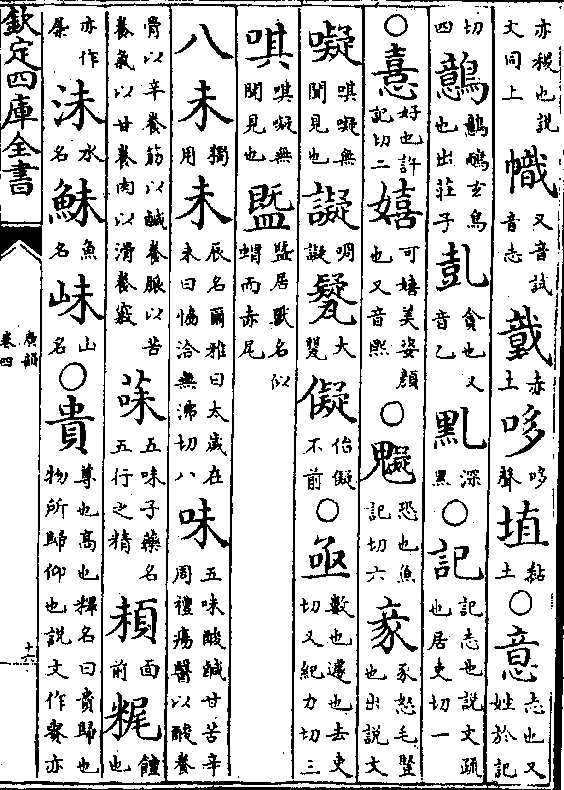 亦稷也說文同上幟又音試音志赤土哆哆聲埴黏土○意志也又姓於記
切四鷾鷾鴯玄鳥也出莊子亄貪也又音乙深黑○記記志也說文疏也居吏切一
○憙好也許記切二嬉可嬉美姿顔也又音熙○恐也魚記切六豙豕怒毛豎也出說文
㘈唭㘈無聞見也譺啁譺大甖儗佁儗不前○亟數也遽也去吏切又紀力切三
唭唭㘈無聞見也居獸名似蝟而赤尾
八未獨用未辰名爾雅曰太歲在未曰恊洽無沸切八味五味酸鹹甘苦辛周禮瘍醫以酸養
骨以辛養筋以鹹養脈以苦養氣以甘養肉以滑養竅菋五味子藥名五行之精面前饘也
亦作沬水名鮇魚名山名○貴尊也高也釋名曰貴歸也物所歸仰也說文作亦
欽定四庫全書
廣韻
卷四
十六